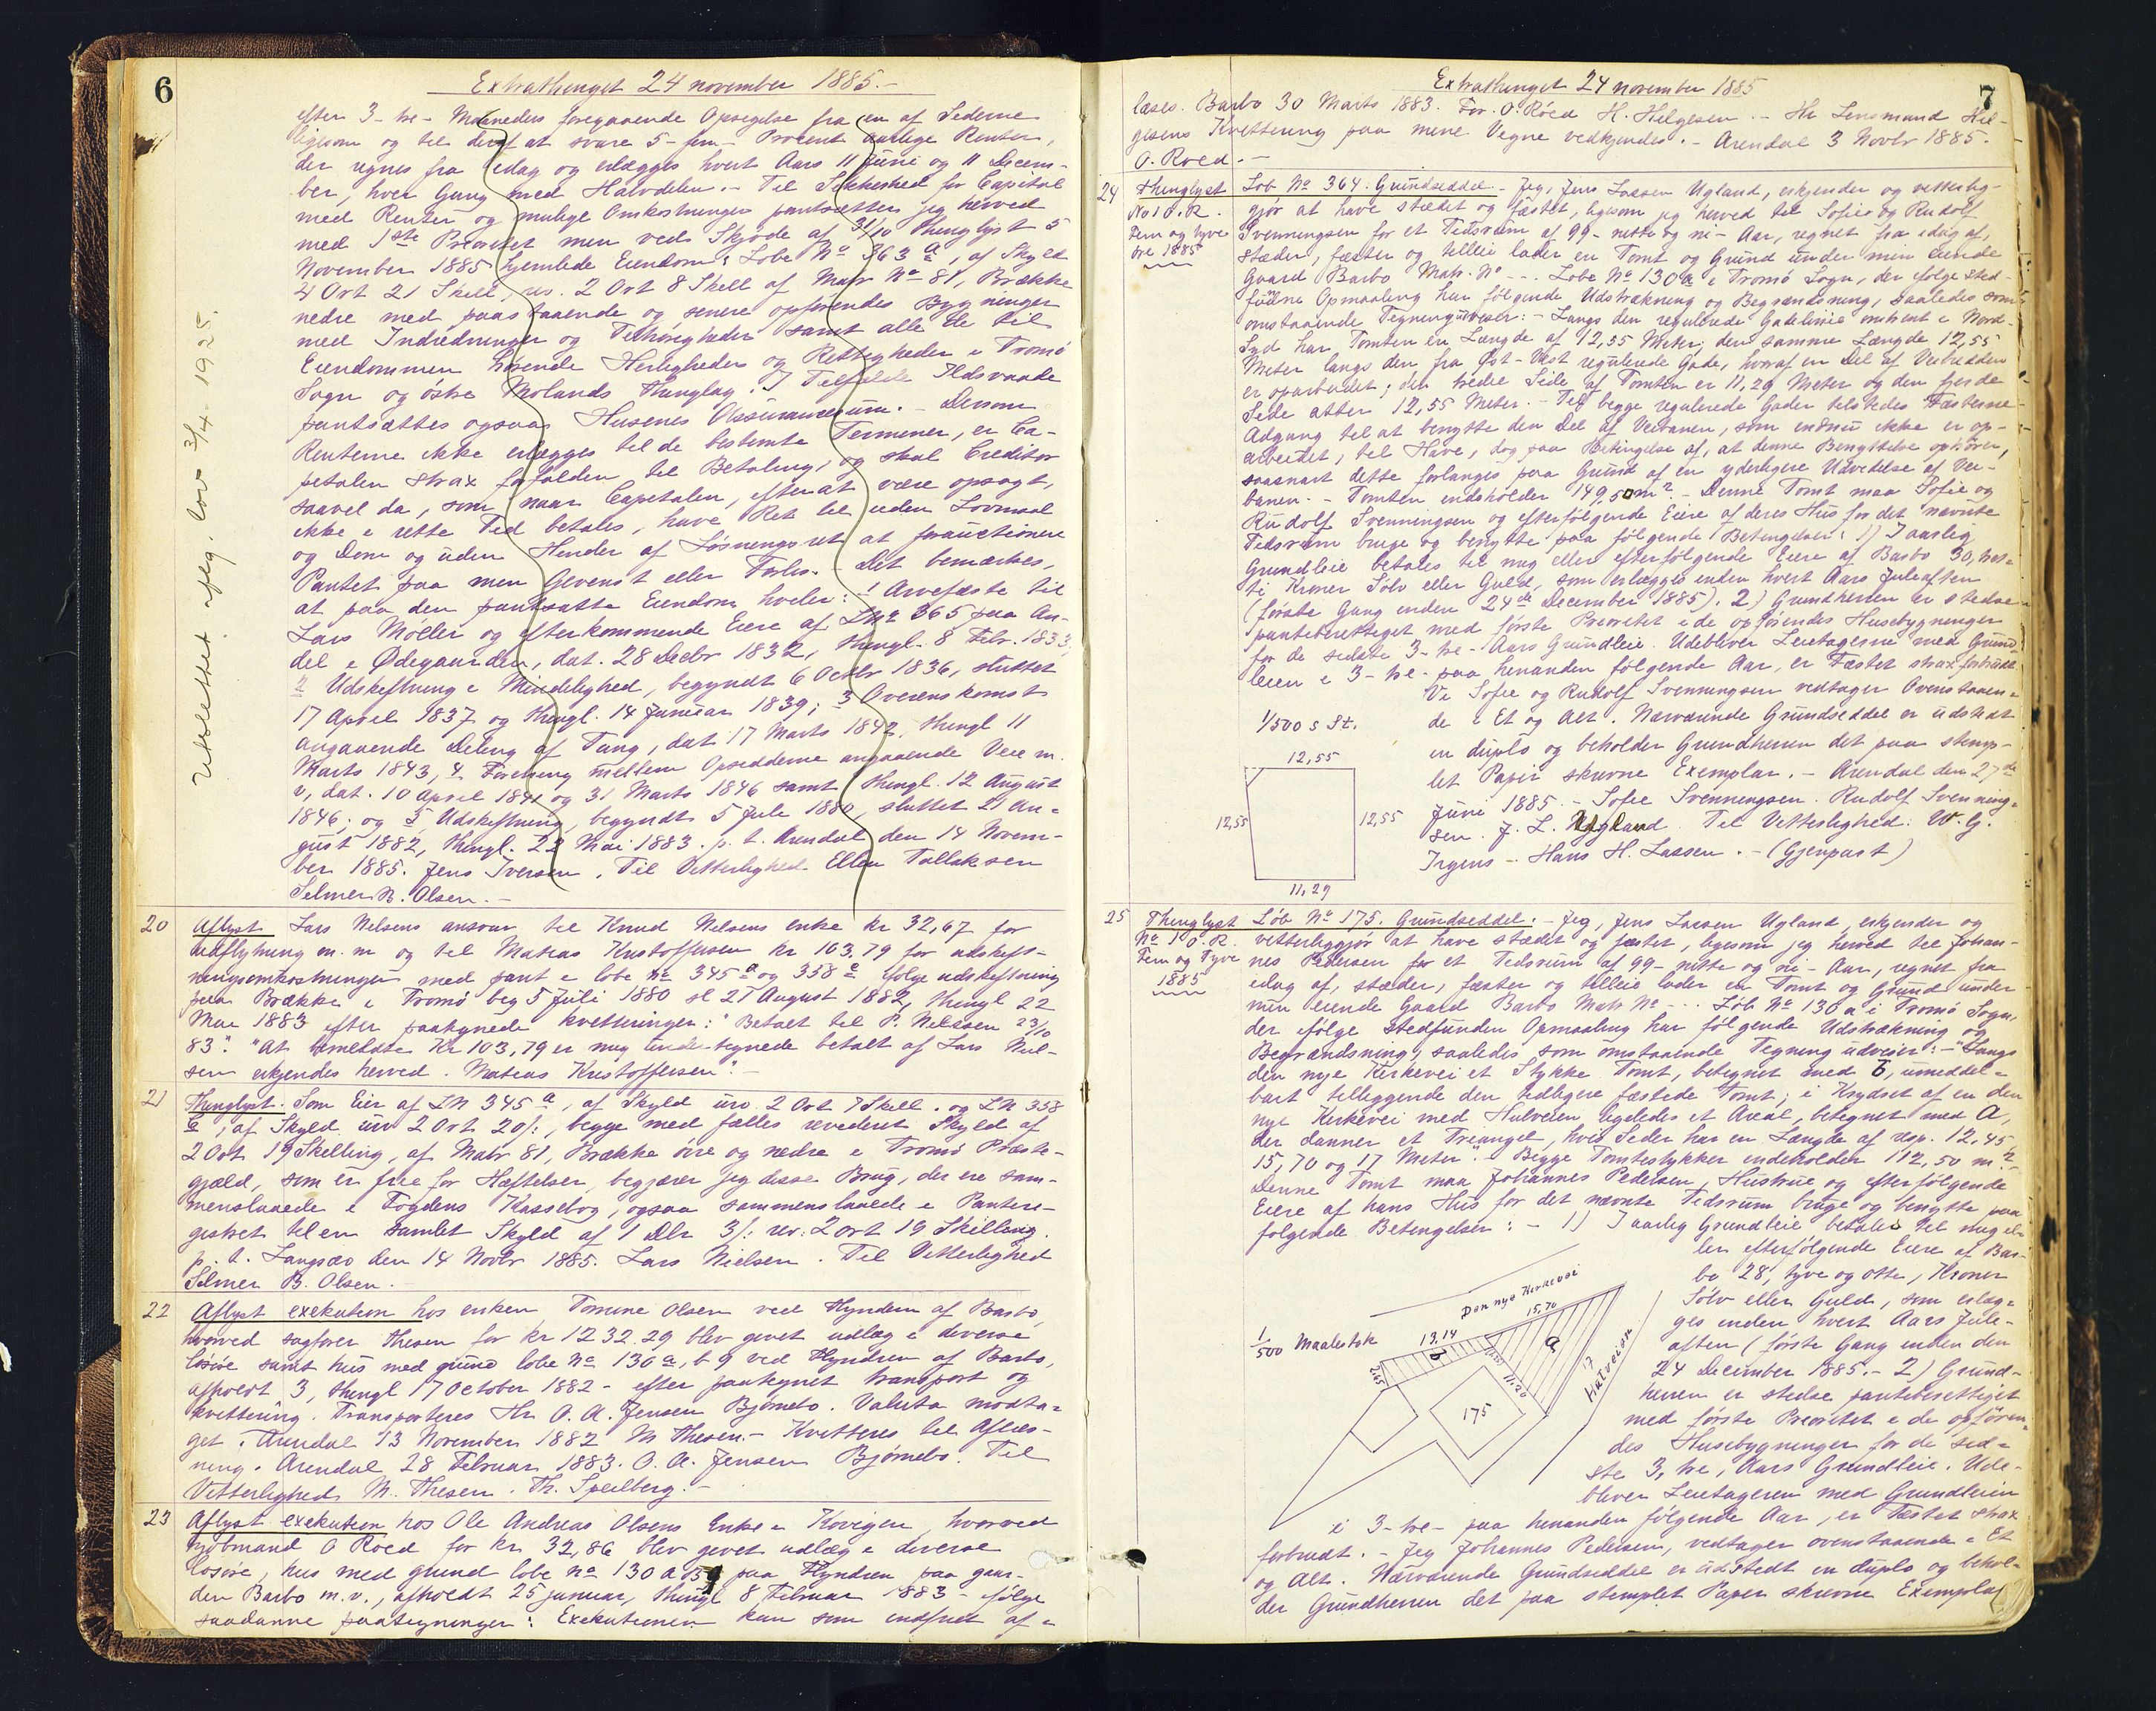 6
Extrathinget 24 november 1885.-
efter 3- tre- Maaneders foregaaende Opsigelse fra en af Siderne
ligesom og til deraf at svare 5- fem- Procent aarlige Renter,
der regnes fra idag og erlægges hvert Aars 11 Juni og 11 Decem-
ber, hver Gang med Halvdelen.- Til Sikkerhed for Capital
med Renter og mulige Omkostninger pantsætter jeg herved
med 1ste Prioritet min ved Skjøde af 31/10 thinglyst 5
November 1885 hjemlede Eiendom: Løbe No 363 a, af Skyld
4 Ort 21 Skill, rev. 2 Ort 8 Skell af Matr No 81, Brække
nedre med paastaaende og senere opførendes Bygninger
med Indredninger og Tilhørigheder samt alle de til
Eiendommen hørende Herligheder og Rettigheder i Tromø
Sogn og østre Molands Thinglag. I Tilfælde Ildsvaade
pantsættes ogsaa Husenes Assurancesum.- Dersom
Renterne ikke erlægges til de bestemte Terminer, er Ca-
pitalen strax forfalden til Betaling, og skal Creditor
saavel da, som naar Capitalen, efter at være opsagt,
ikke i rette Tid betales, have Ret til uden Lovmaal
og Dom og uden Hinder af Løsningsret at forauctionere
Pantet paa min Gevinst eller Forlis.- Det bemærkes,
at paa den pantsatte Eiendom hviler: 1 Arvefæste til
Lars Møller og efterkommende Eiere af LNo 365 paa An-
del i Ødegaarden, dat. 28 Decbr 1832, thingl. 8 Febr. 1833,
2 Udskiftning i Mindelighed, begyndt 6 Octbr 1836, sluttet
17 April 1837 og thingl. 14 Januar 1839; 3 Overenskomst
angaaende Deling af Tang, dat 17 Marts 1842, thingl 11
Marts 1843, 4. Forening mellem Opsidderne angaaende Veie m.
v, dat. 10 April 1841 og 31 Marts 1846 samt thingl. 12 August
1846; og 5 Udskiftning, begyndt 5 Juli 1880, sluttet 21 Au-
gust 1882, thingl. 22 Mai 1883. p. t. Arendal den 14 Novem-
ber 1885. Jens Iversen. Til Vitterlighed Ellen Tallaksen
Selmer B. Olsen.-
Utslettet iflg. lov 3/4 1925.
20 Aflyst Lars Nilsens ansvar til Knud Nilsens enke kr 32,67 for
udflytning m. m og til Matias Kristoffersen kr 103.79 for udskift-
ningsomkostninger med pant i løbe no 345 a og 358 c ifølge udskiftning
paa Brække i Tromø beg 5 juli 1880 sl 21 August 1882, thingl 22
Mai 1883 efter paategnede kvitteringer: "Betalt til P. Nilssen 23/10
83". "At omeldte Kr 103,79 er mig undertegnede betalt af Lars Niel-
sen erkjendes herved. Matias Kristoffersen".-
21 Thinglyst. Som Eier af LN 345 a, af Skyld urv 2 Ort 7 Skell. og LN 358
c, af Skyld urv 2 Ort 20 /:, begge med fælles revideret Skyld af
2 Ort 19 Skelling, af Matr 81, Brække øvre og nedre i Tromø Præste-
gjæld, som er frie for Hæftelser, begjærer jeg disse Brug, der ere sam-
menslaaede i Fogdens Kassebog, ogsaa sammenslaaede i Pantere-
gistret til en samlet Skyld af 1 Dlr 3/: rev: 2 ort 19 Skilling.
p. t. Langsæv den 14 Novbr 1885. Lars Nielsen. Til Vitterlighed
Selmer B. Olsen.-
22 Aflyst exekution hos enken Tomine Olsen ved Hyndøen af Barbo,
hvorved sagfører Thesen for kr 1232.29 blev givet udlæg i diverse
løsøre samt hus med grund løbe no 130 a, b 9 ved Hyndøen af Barbo,
afholdt 3, thingl 17 October 1882 - efter paategnet transport og
kvittering. Transporteres Hr O. A. Jensen Bjørnebo. Valuta modta-
get. Arendal 13 November 1882 M Thesen.- Kvitteres til Aflæs-
ning. Arendal 28 Februar 1883. O. A. Jensen Bjørnebo. Til
Vitterlighed M. Thesen. Th. Speilberg.-
23 Aflyst exekution hos Ole Andreas Olsens Enke i Kovigen, hvorved
kjøbmand O Röed for kr 32,86 blev givet udlæg i diverse
løsøre, hus med grund løbe no 130 a paa Hyndøen paa gaar-
den Barbo m.v., afholdt 25 januar, thingl 8 Februar 1883 - ifølge
saadanne paategninger: Exekutionen kan som indfriet af-
Extrathinget 24 november 1885
7
læses. Barbo 30 Marts 1883. For O. Röed H. Helgesen.- Hr Lensmand Hel-
gesens Kvittering paa mine Vegne vedkjendes.- Arendal 3 Novbr 1885.
O. Röed.-
24 Thinglyst Løb No 364. Grundseddel.- Jeg, Jens Lassen Ugland, erkjender og vitterlig-
No 1 O. R. gjør at have stædet og fæstet, ligesom jeg herved til Sofie og Rudolf
Fem og tyve Svenningsen for et Tidsrum af 99- nitti og ni- Aar, regnet fra idag af,
øre 1885 stæder, fæster og tilleie lader en Tomt og Grund under min eiende
Gaard Barbo Matr. No -- Løbe No 130 a i Tromø Sogn, der ifølge sted-
funden Opmaaling har følgende Udstrækning og Begrændsning, saaledes som
omstaaende Tegning udviser:- Langs den regulerede Gadelinie omtrent i Nord-
Syd har Tomten en Længde af 12,55 Meter; den samme Længde 12,55
Meter langs den fra Øst-Vest regulerede Gade, hvoraf en Del af Veibredden
er oparbeidet; den tredie Side af Tomten er 11,29 Meter og den fjerde
Side atter 12,55 Meter.- Til begge regulerede Gader tilstedes Fæsterne
Adgang til at benytte den Del af Veibanen, som endnu ikke er op-
arbeidet, til Have, dog paa Betingelse af, at denne Benyttelse ophører,
saasnart dette forlanges paa Grund af en yderligere Udvidelse af Vei-
banen.- Tomten indeholder 149,50 m2.- Denne Tomt maa Sofie og
Rudolf Svenningsen og efterfølgende Eiere af deres Hus for det nævnte
Tidsrum bruge og benytte paa følgende Betingelser: 1) I aarlig
Grundleie betales til mig eller efterfølgende Eiere af Barbo 30, tret-
ti Kroner Sølv eller Guld, som erlægges inden hvert Aars Juleaften
(første Gang inden 24de December 1885). 2) Grundherren er stedse
panteberettiget med første Prioritet i de opførendes Husebygninger
for de sidste 3- tre- Aars Grundleie. Udebliver Leietagerne med Grund-
leien i 3- tre- paa hinanden følgende Aar, er Fæstet strax forbrudt
Vi Sofie og Rudolf Svenningsen vedtager Ovenstaaen-
de i Et og Alt. Nærværende Grundseddel er udstedt
in duplo og beholder Grundherren det paa stemp-
let Papir skrevne Exemplar.- Arendal den 27de
Juni 1885.- Sofie Svenningsen. Rudolf Svenning-
sen. J. L. Ugland. Til Vitterlighed: W. G.
Irgens - Hans H. Lassen.- (Gjenpart)
1/500 s St.
12,55
12,55
12,55
11,29
25 Thinglyst Løb No 175. Grundseddel:- Jeg, Jens Lassen Ugland, erkjender og
No 1 O. R. vitterliggjør at have stædet og fæstet, ligesom jeg herved til Johan-
Fem og Tyve nes Pedersen for et Tidsrum af 99- nitti og ni- Aar, regnet fra
1885 idag af, stæder, fæster og tilleie lader en Tomt og Grund under
min eiende Gaard Barbo Matr No --- Løb No 130 a i Tromø Sogn,
der ifølge stedfunden Opmaaling har følgende Udstrækning og
Begrændsning, saaledes som omstaaende Tegning udviser:- "Langs
den nye Kirkevei et Stykke Tomt, betegnet med b, umiddel-
bart tilliggende den tidligere fæstede Tomt; i Krydset af en den
nye Kirkevei med Hulveien ligeledes et Areal, betegnet med A,
der danner et Triangel, hvis Sider har en Længde af resp. 12,45
15,70 og 17 Meter". Begge Tomtestykker indeholder 112,50 m2.-
Denne Tomt maa Johannes Pedersen, Hustrue og efterfølgende
Eiere af hans Hus for det nævnte Tidsrum bruge og benytte paa
følgende Betingelser:- 1) I aarlig Grundleie betales til mig el-
ler efterfølgende Eiere af Bar-
bo 28, tyve og otte, Kroner
Sølv eller Guld, som erlæg-
ges inden hvert Aars Jule-
aften (første Gang inden den
24 December 1885.- 2) Grund-
herren er stedse panteberettiget
med første Prioritet i de opføren-
des Husebygninger for de sid-
ste 3, tre, Aars Grundleie. Ude-
bliver Leietageren med Grundleien
i 3- tre- paa hinanden følgende Aar, er Fæstet strax
forbrudt.- Jeg Johannes Pedersen, vedtager ovenstaaende i Et
og Alt. Nærværende Grundseddel er udstedt in duplo og behol-
der Grundherren det paa stemplet Papir skrevne Exemplar
1/500 Maalestok
Den nye Kirkevei
15,70
13,14
b
a
17
Hulveien
11,20
175